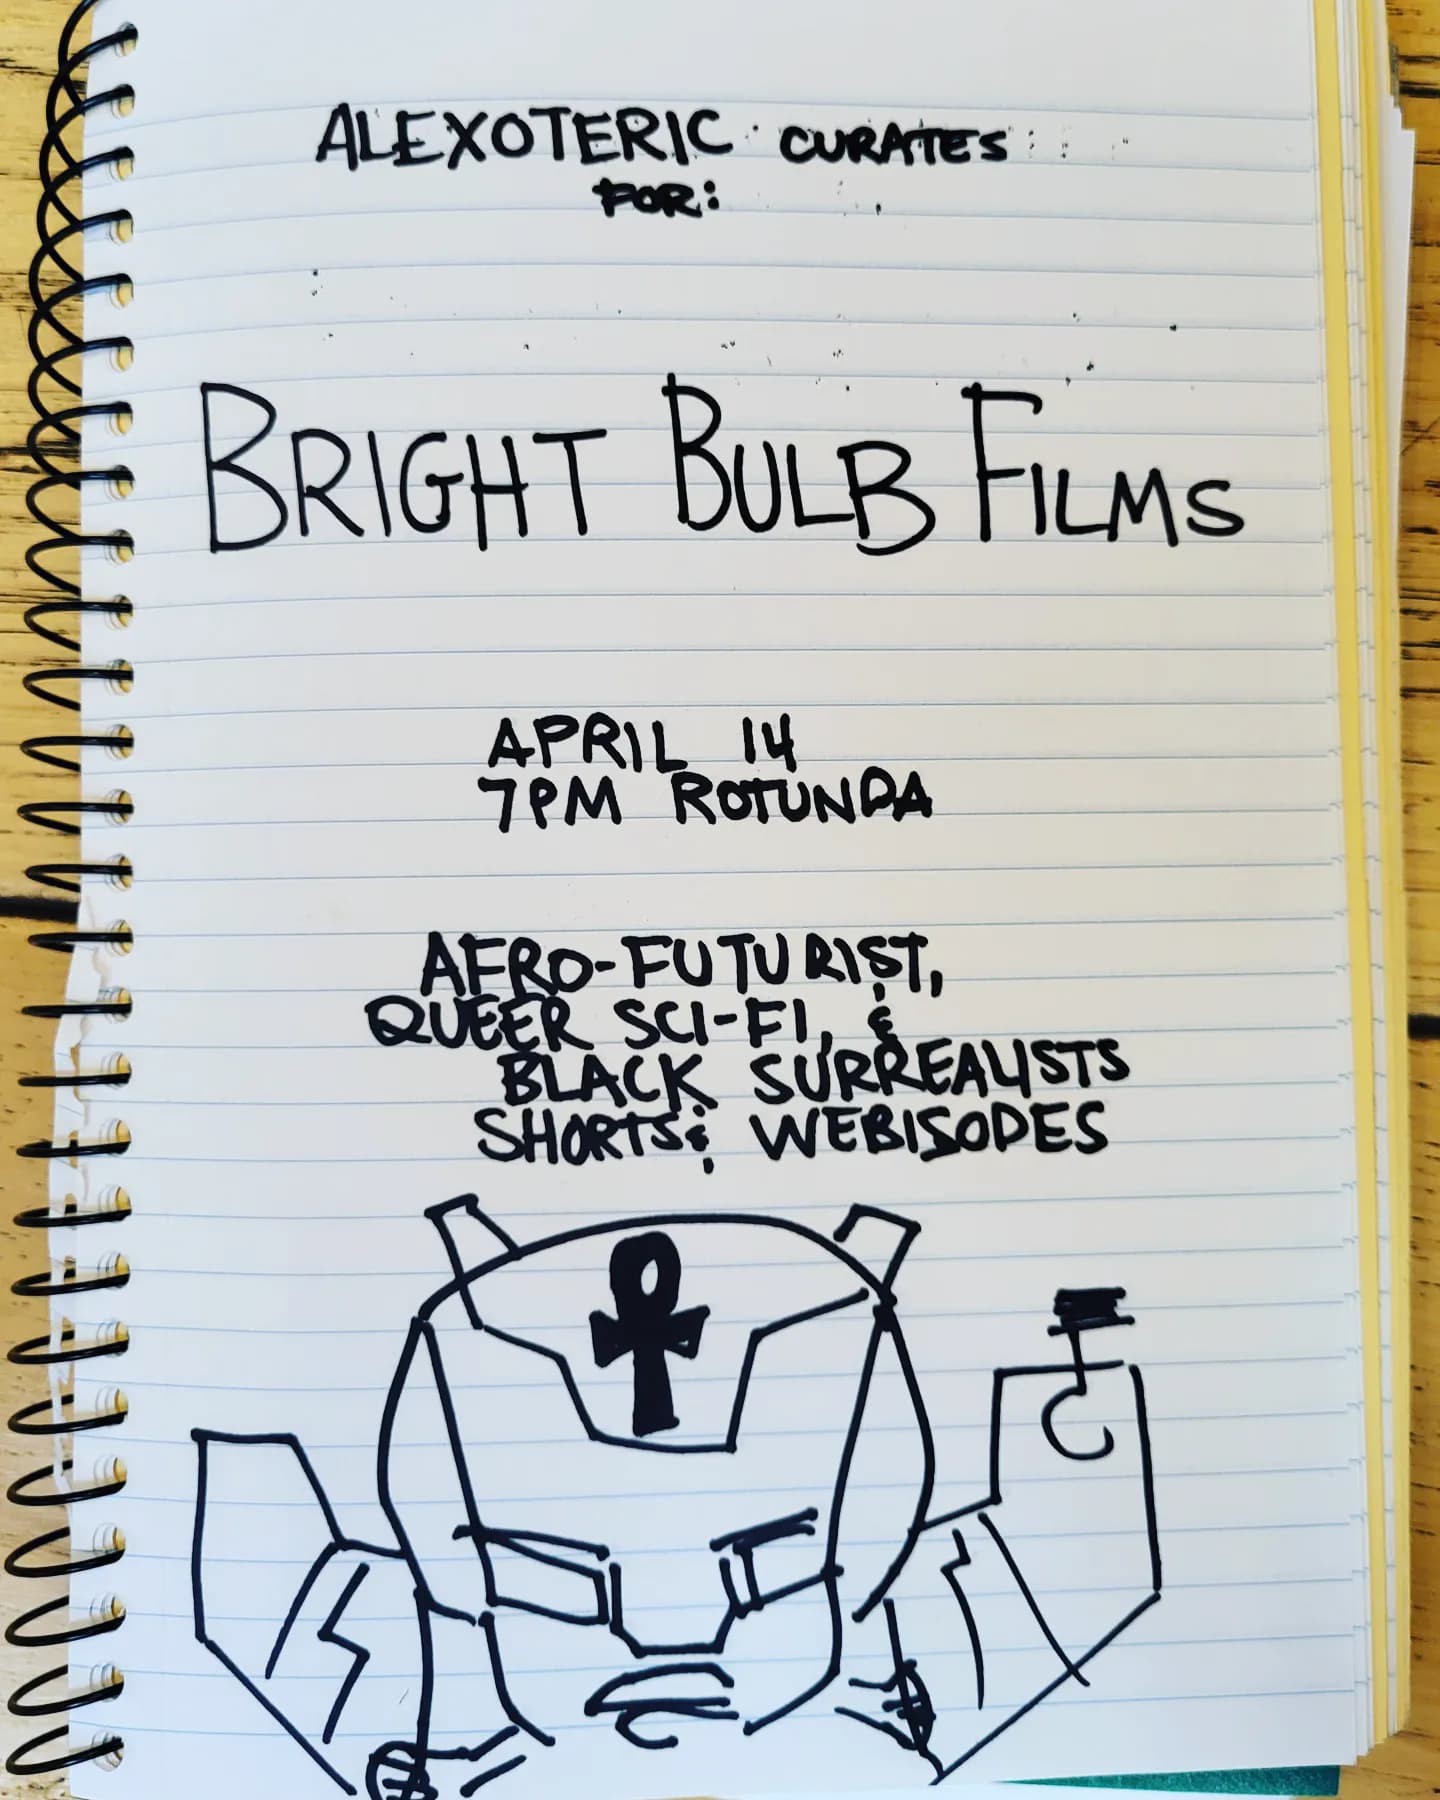 ALEXOTERIC CURATES
FOR:
BRIGHT BULB FILMS
APRIL 14
7PM ROTUNDA
AFRO-FUTURIST,
QUEER SCI-FI, &
BLACK SURREALISTS
SHORTS & WEBISODES